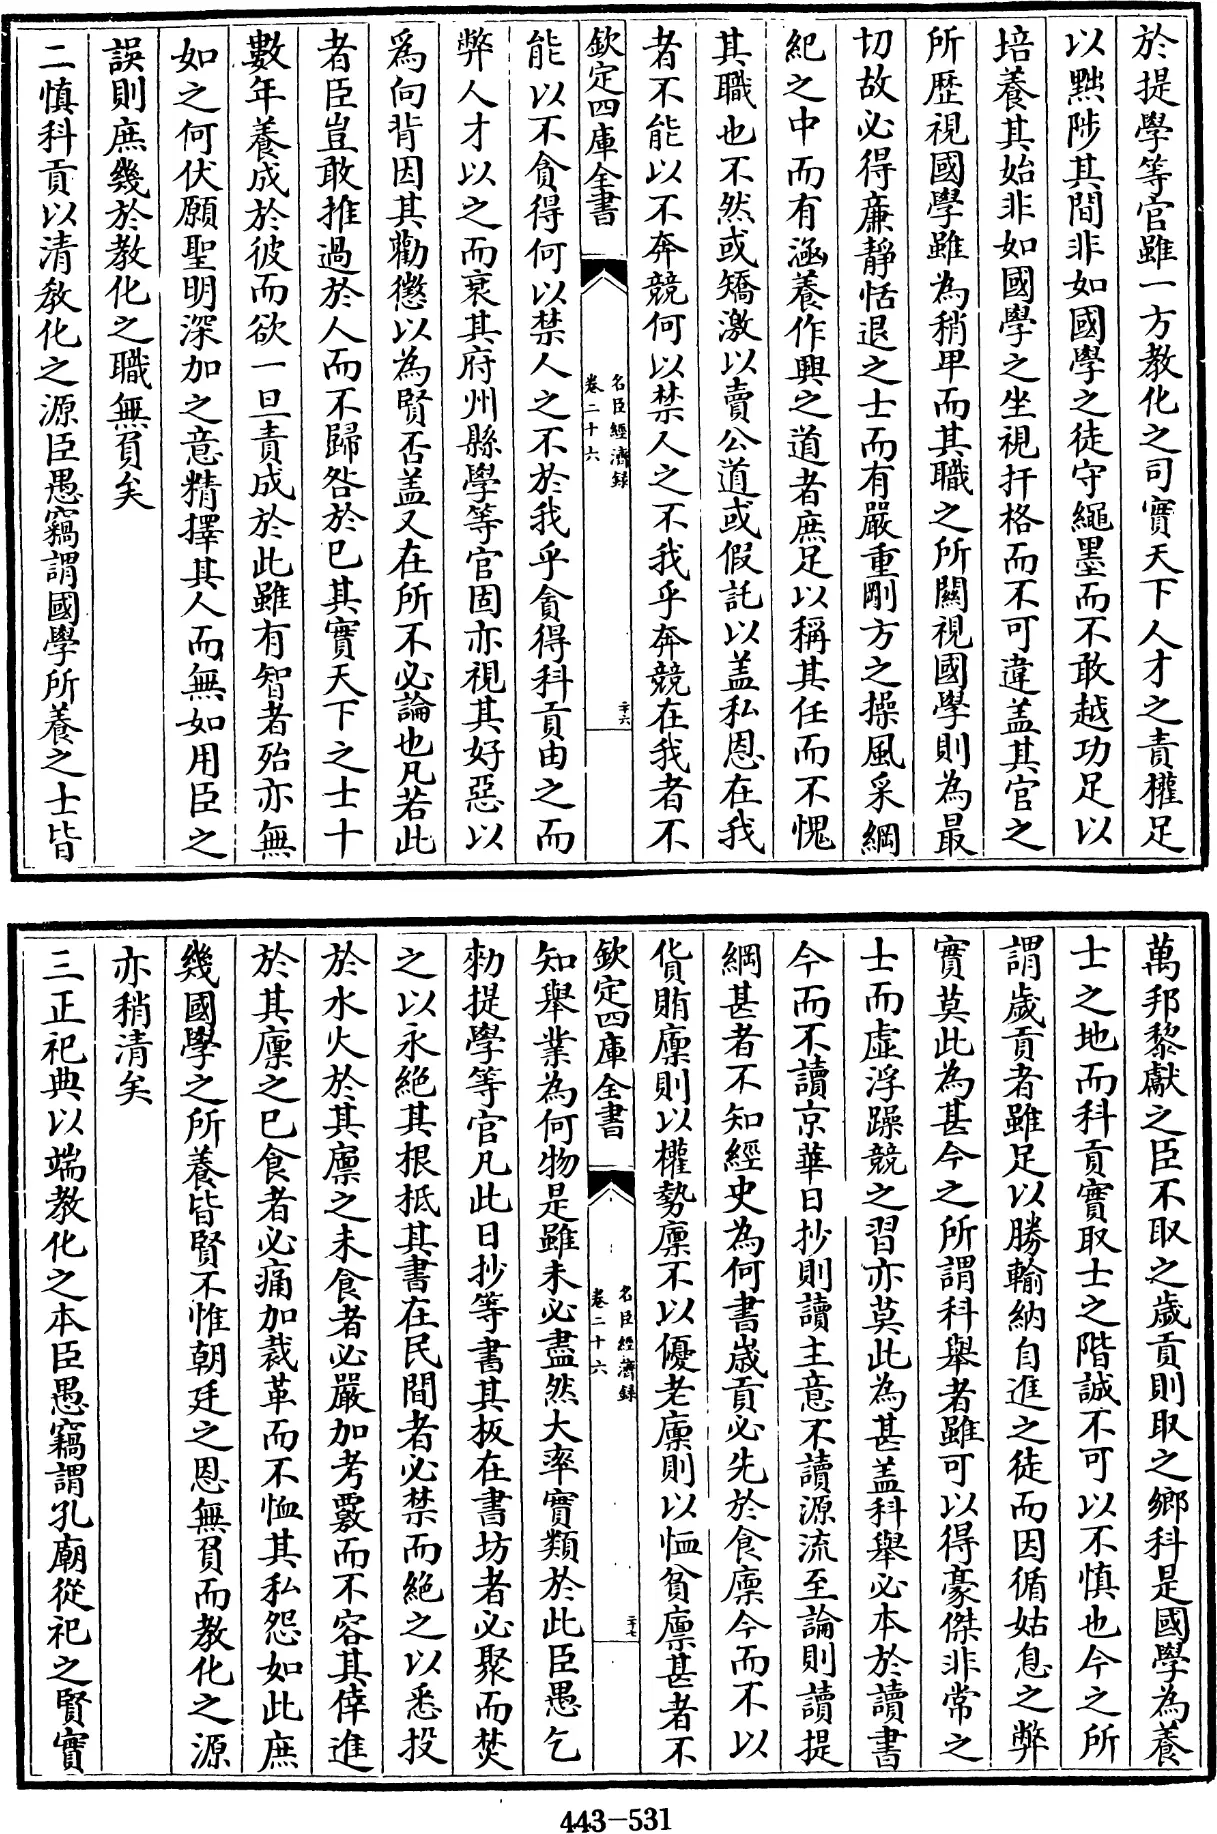 於提學等官雖一方教化之司實天下人才之責權足
以黜陟其間非如國學之徒守繩墨而不敢越功足以
培養其始非如國學之坐視扞格而不可違盖其官之
所歴視國學雖為稍卑而其職之所關視國學則為最
切故必得亷靜恬退之士而有嚴重剛方之操風采綱
紀之中而有涵養作興之道者庶足以稱其任而不愧
其職也不然或矯激以賣公道或假託以盖私恩在我
者不能以不奔競何以禁人之不我乎奔競在我者不
欽定四庫全書
名臣經濟録
卷二十六
二十六
能以不貪得何以禁人之不於我乎貪得科貢由之而
弊人才以之而衰其府州縣學等官固亦視其好惡以
為向背因其勸懲以為賢否盖又在所不必論也凡若此
者臣豈敢推過於人而不歸咎於已其實天下之士十
數年養成於彼而欲一旦責成於此雖有智者殆亦無
如之何伏願聖明深加之意精擇其人而無如用臣之
誤則庶幾於教化之職無負矣
二慎科貢以清教化之源臣愚竊謂國學所養之士皆
萬邦黎獻之臣不取之歲貢則取之鄉科是國學為養
士之地而科貢實取士之階誠不可以不慎也今之所
謂歲貢者雖足以勝輸納自進之徒而因循姑息之弊
實莫此為甚今之所謂科舉者雖可以得豪傑非常之
士而虛浮躁競之習亦莫此為甚盖科舉必本於讀書
今而不讀京華日抄則讀主意不讀源流至論則讀提
綱甚者不知經史為何書歲貢必先於食廩今而不以
貨賄廩則以權勢廩不以優老廩則以恤貧廩甚者不
欽定四庫全書
名臣經濟録
卷二十六
二十七
知舉業為何物是雖未必盡然大率實類於此臣愚乞
勑提學等官凡此日抄等書其板在書坊者必聚而焚
之以永絶其根柢其書在民間者必禁而絶之以悉投
於水火於其廩之未食者必嚴加考覈而不容其倖進
於其廩之已食者必痛加裁革而不恤其私怨如此庶
幾國學之所養皆賢不惟朝廷之恩無負而教化之源
亦稍清矣
三正祀典以端教化之本臣愚竊謂孔廟從祀之賢實
443-531